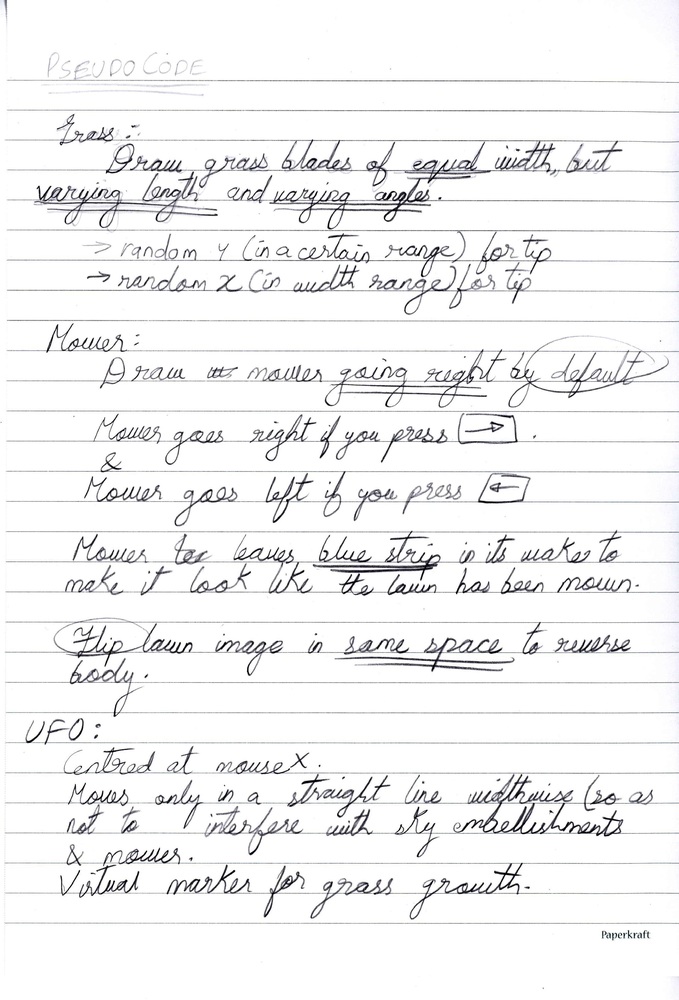 PSEUDO CODE
Grass :-
Draw grass blades of equal width, but
varying length and varying angles.
→ random y (in a certain range) for tip
→ random x (in width range) for tip
Mower:
Draw mower going right by default
Mower goes right if you press → .
&
Mower goes left if you press ←
Mower leaves blue strip in its wake to
make it look like the lawn has been mown.
Flip lawn image in same space to reverse
body.
UFO:
Centred at mouseX.
Moves only in a straight line widthwise (so as
not to interfere with sky embellishments
& mower.
Virtual marker for grass growth.
Paperkraft